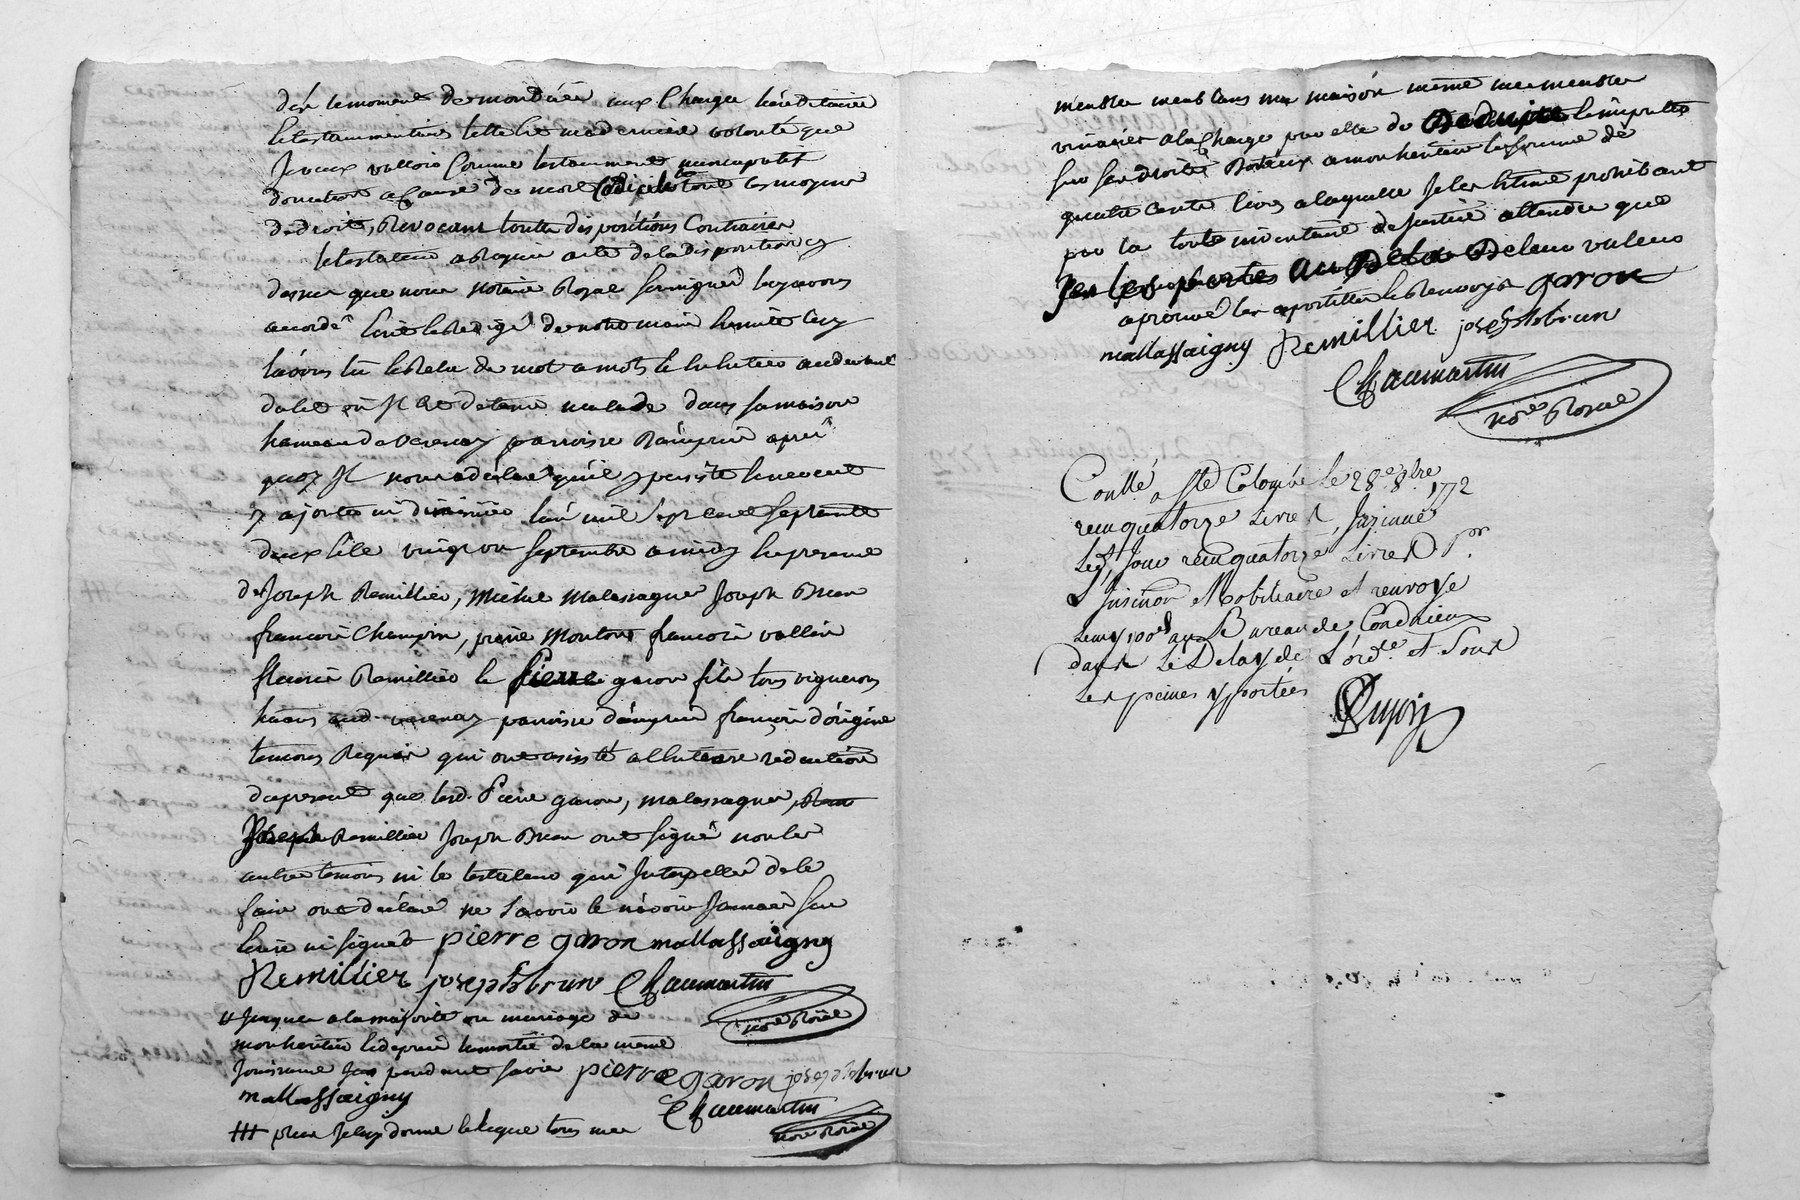 dès le moment de mon décès aux charges héréditaires
et testamentaires telle est ma dernière volonté que
je veux valloir comme testament nuncupatif
donation a cause de mort codicile et tous les moyens
de droit, Revocant toutes dispositions Contraires
le testateur a Requis acte de la disposition cy
dessus que nous notaire Royal soussigné luy avons
accordé écrit et redigé de notre main ensuite luy
l'avons lu et relu de mot a mot
datté où il est detenu malade dans sa maison
hameau de verenay parroisse d'ampuis après
quoy il nous a déclaré qu'il y persiste
y ajouter ni diminuer l'an mil sept cent septante
deux et le vingt un septembre a midy en presence
de Joseph Remillier, Michel Malassagner Joseph Brun
françois Champin, pierre Montons françois vallin
fleurie Remillier et pierre garon fils tous vignerons
verenay parroisse d'ampuis françois d'origine
temoins Requis qui ont assisté a l'entiere redaction
du present que lesd. Pierre garon, malassagner, Brun
Joseph Remillier Joseph Brun ont signé non les
autres temoins ni le testateur qui Interpellés de le
faire ont déclaré ne savoir et n'avoir Jamais sçu
écrire ni signer pierre garon mallassaigny
Remillier joseph brun Chaumartin
nore Roial
# Jusques a la majorité ou mariage de
mon heritier et depuis la moitié de la même
Jouissance Jan pendant sa vie pierre garon joseph brun
mallassaigny Chaumartin
‡‡‡ plus Je luy donne et legue tous mes nore Roial
meubles meublans ma maison même mes meubles
vinaires a la Charge par elle de Deduire et imputer
sur ses droits Dotaux a mon heritier la somme de
quatre cents livres a laquelle Je les Estime prohibant
par la toute inventaire de Justice attendu que
Je les portes au Dela De leur valeur
aprouvé les apostilles et Renvoys garon
mallassaigny Remillier joseph brun
Chaumartin
nore Roial
Conllé a Ste Colombe le 28e 8bre 1772
reçu quatorze livres, Insinué
led. Jour reçu quatorze livres pr
l'Insinuon Mobiliaire et renvoyé
au Bureau de Condrieu
dans le Delay de L'orde. et sous
les peines y portées
Dupoix